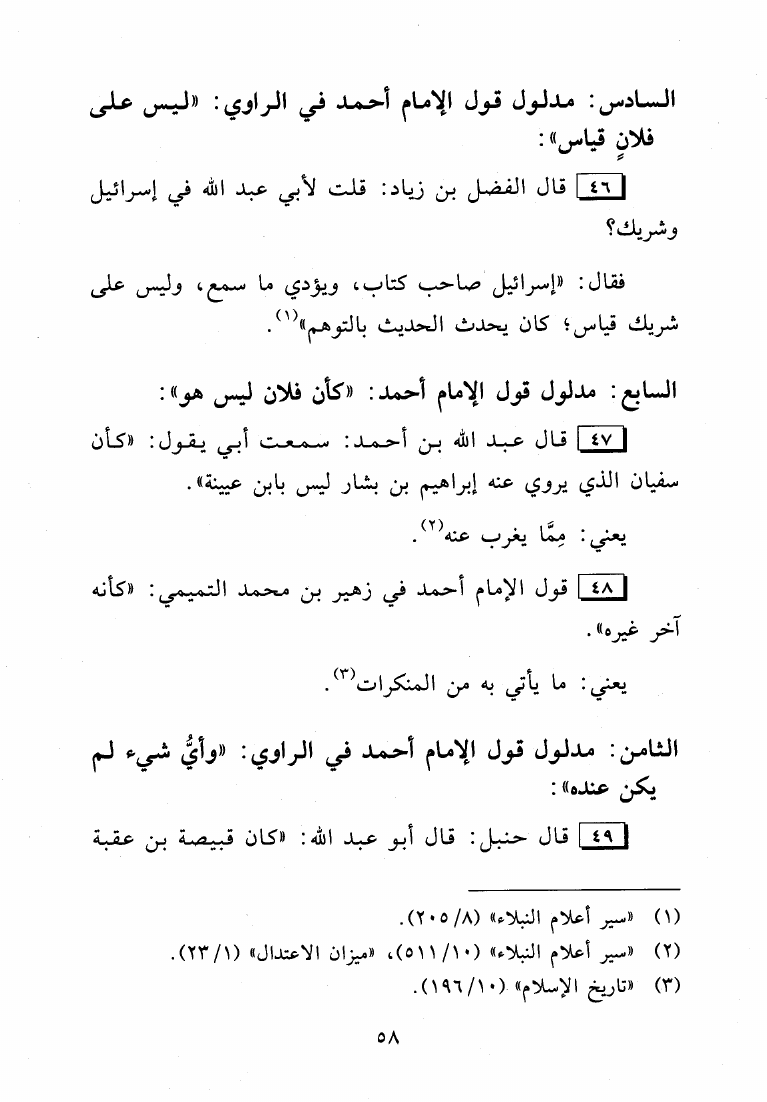 السادس: مدلول قول الإمام أحمد في الراوي: «ليس على
فلانٍ قياس»:
٤٦ قال الفضل بن زياد: قلت لأبي عبد الله في إسرائيل
وشريك؟
فقال: «إسرائيل صاحب كتاب، ويؤدي ما سمع، وليس على
شريك قياس؛ كان يحدث الحديث بالتوهم»(١).
السابع: مدلول قول الإمام أحمد: «كأن فلان ليس هو»:
٤٧ قال عبد الله بن أحمد: سمعت أبي يقول: «كأن
سفيان الذي يروي عنه إبراهيم بن بشار ليس بابن عيينة».
يعني: مِمَّا يغرب عنه(٢).
٤٨ قول الإمام أحمد في زهير بن محمد التميمي: «كأنه
آخر غيره».
يعني: ما يأتي به من المنكرات(٣).
الثامن: مدلول قول الإمام أحمد في الراوي: «وأيُّ شيء لم
يكن عنده»:
٤٩ قال حنبل: قال أبو عبد الله: «كان قبيصة بن عقبة
(١) «سير أعلام النبلاء» (٢٠٥/٨).
(٢) «سير أعلام النبلاء» (٥١١/١٠)، «ميزان الاعتدال» (٢٣/١).
(٣) «تاريخ الإسلام» (١٩٦/١٠).
٥٨